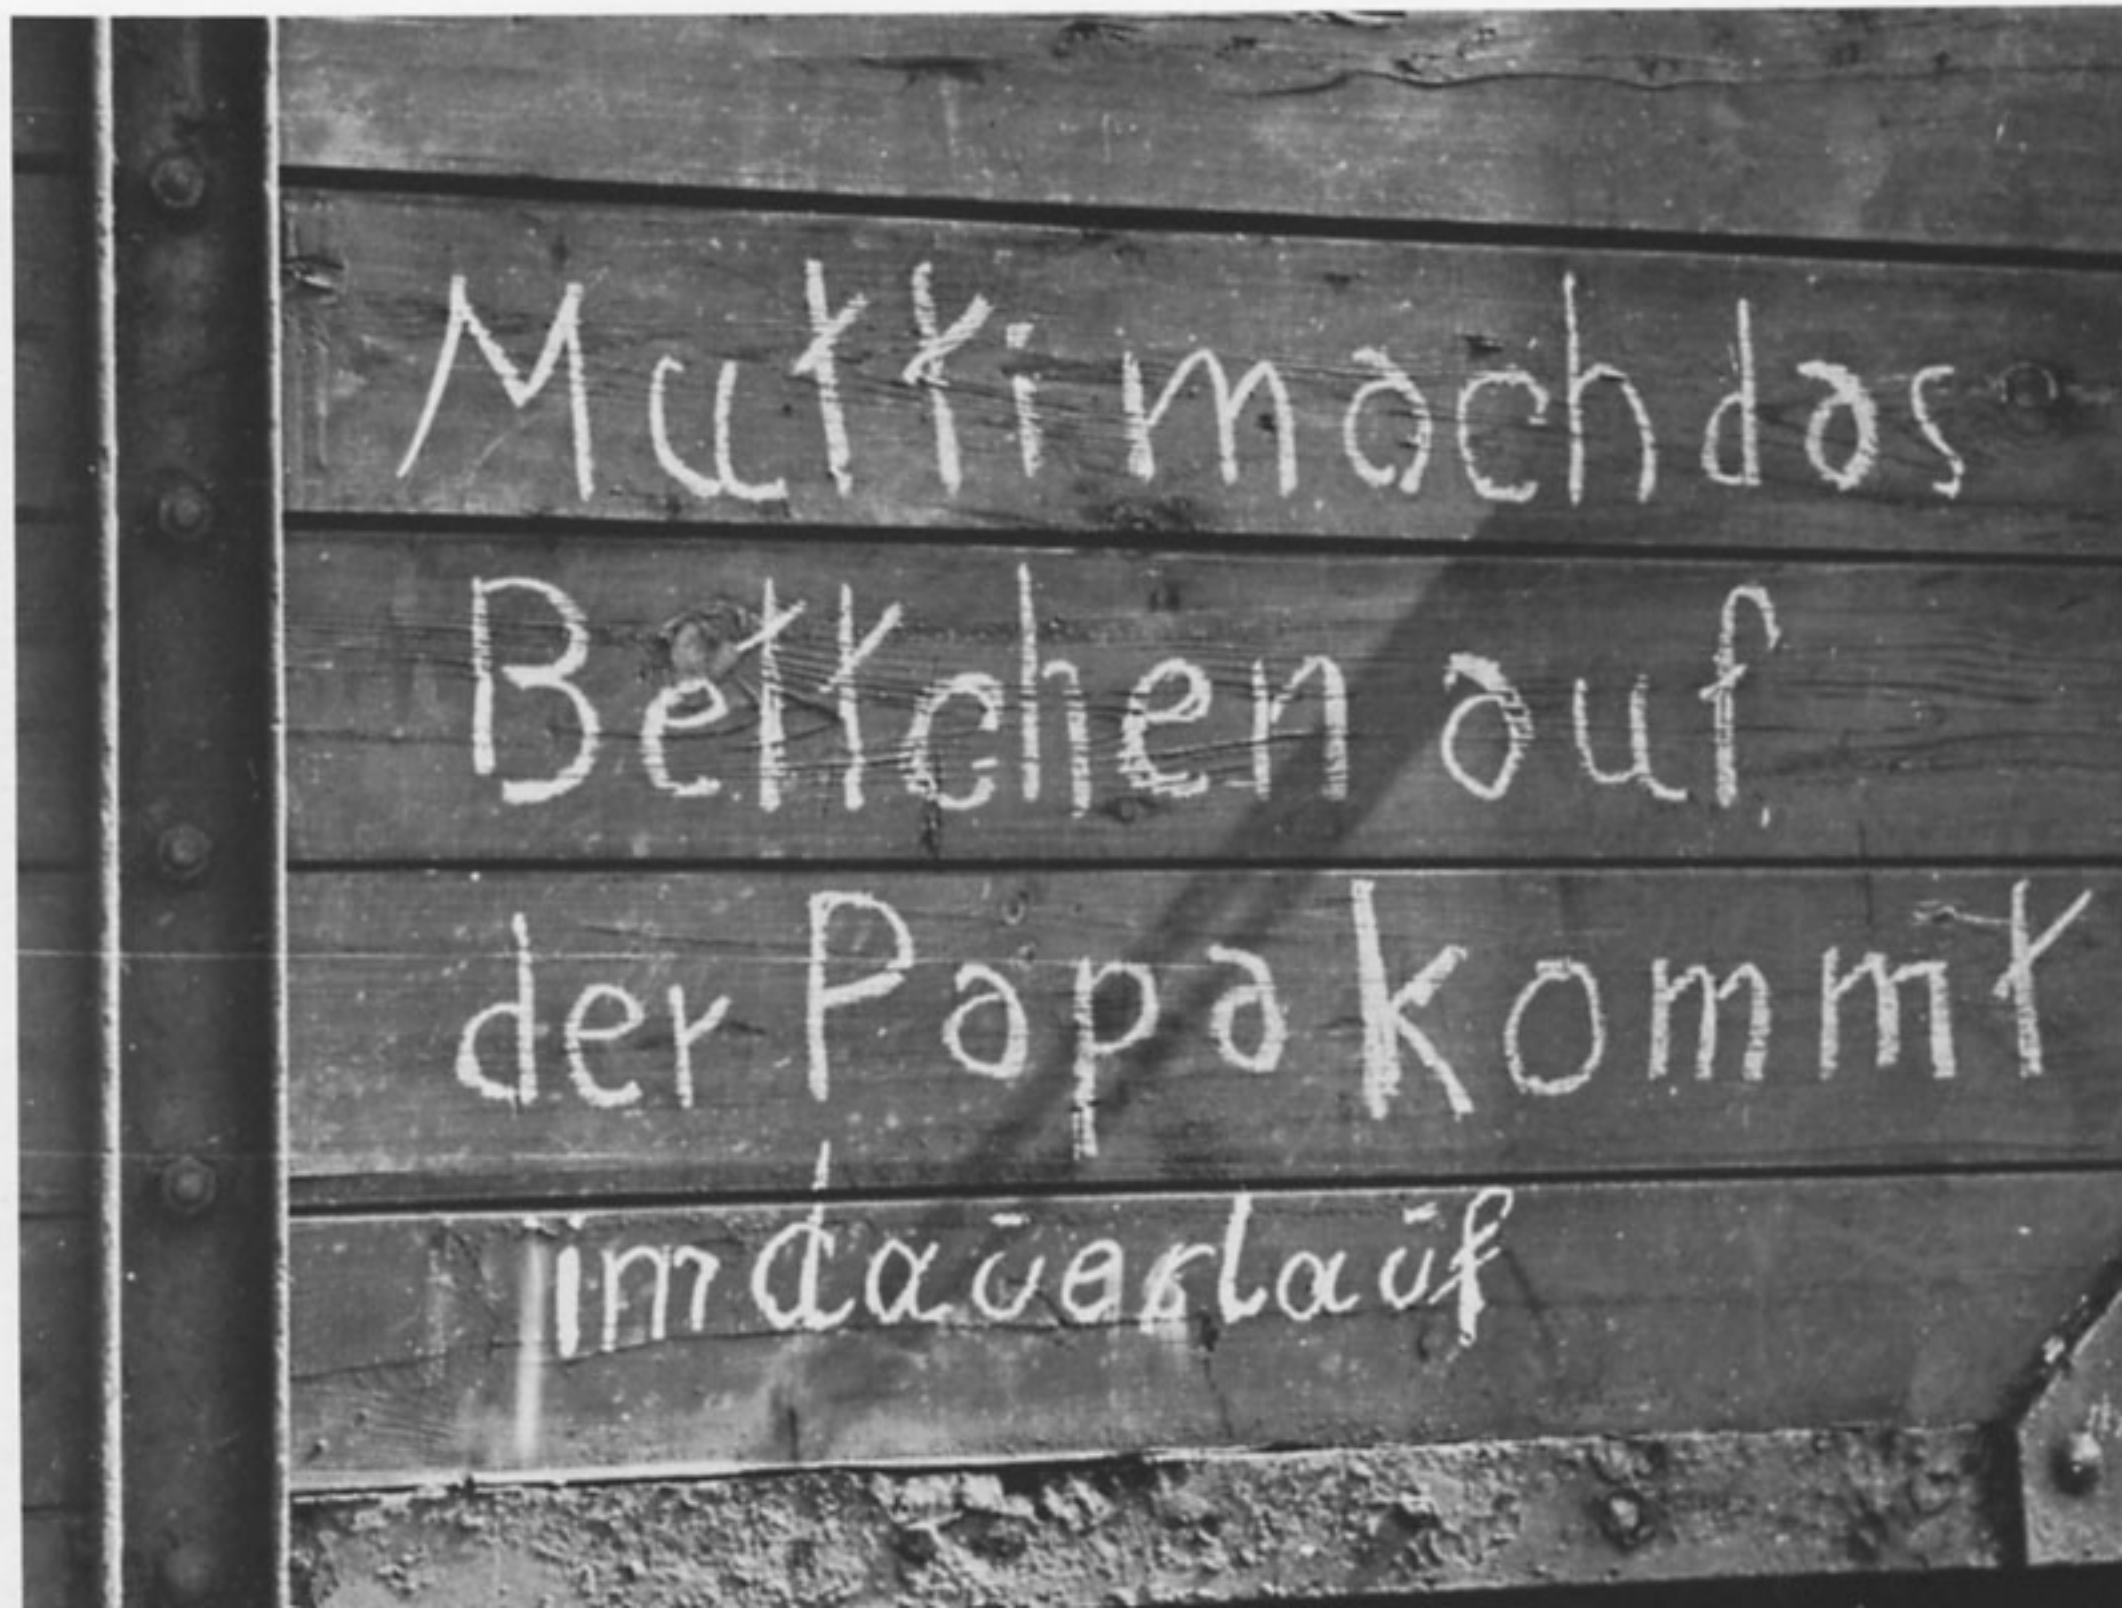 Mutti mach das
Bettchen auf
der Papa kommt
im dauerlauf